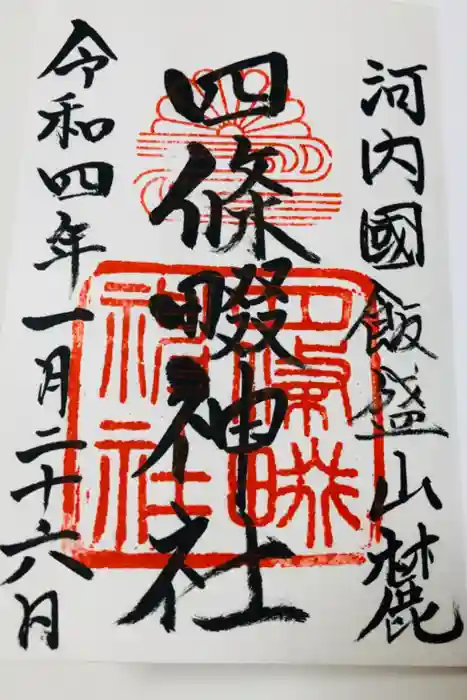 河内國飯盛山麓
四條畷神社
令和四年一月二十六日
四條畷
神社